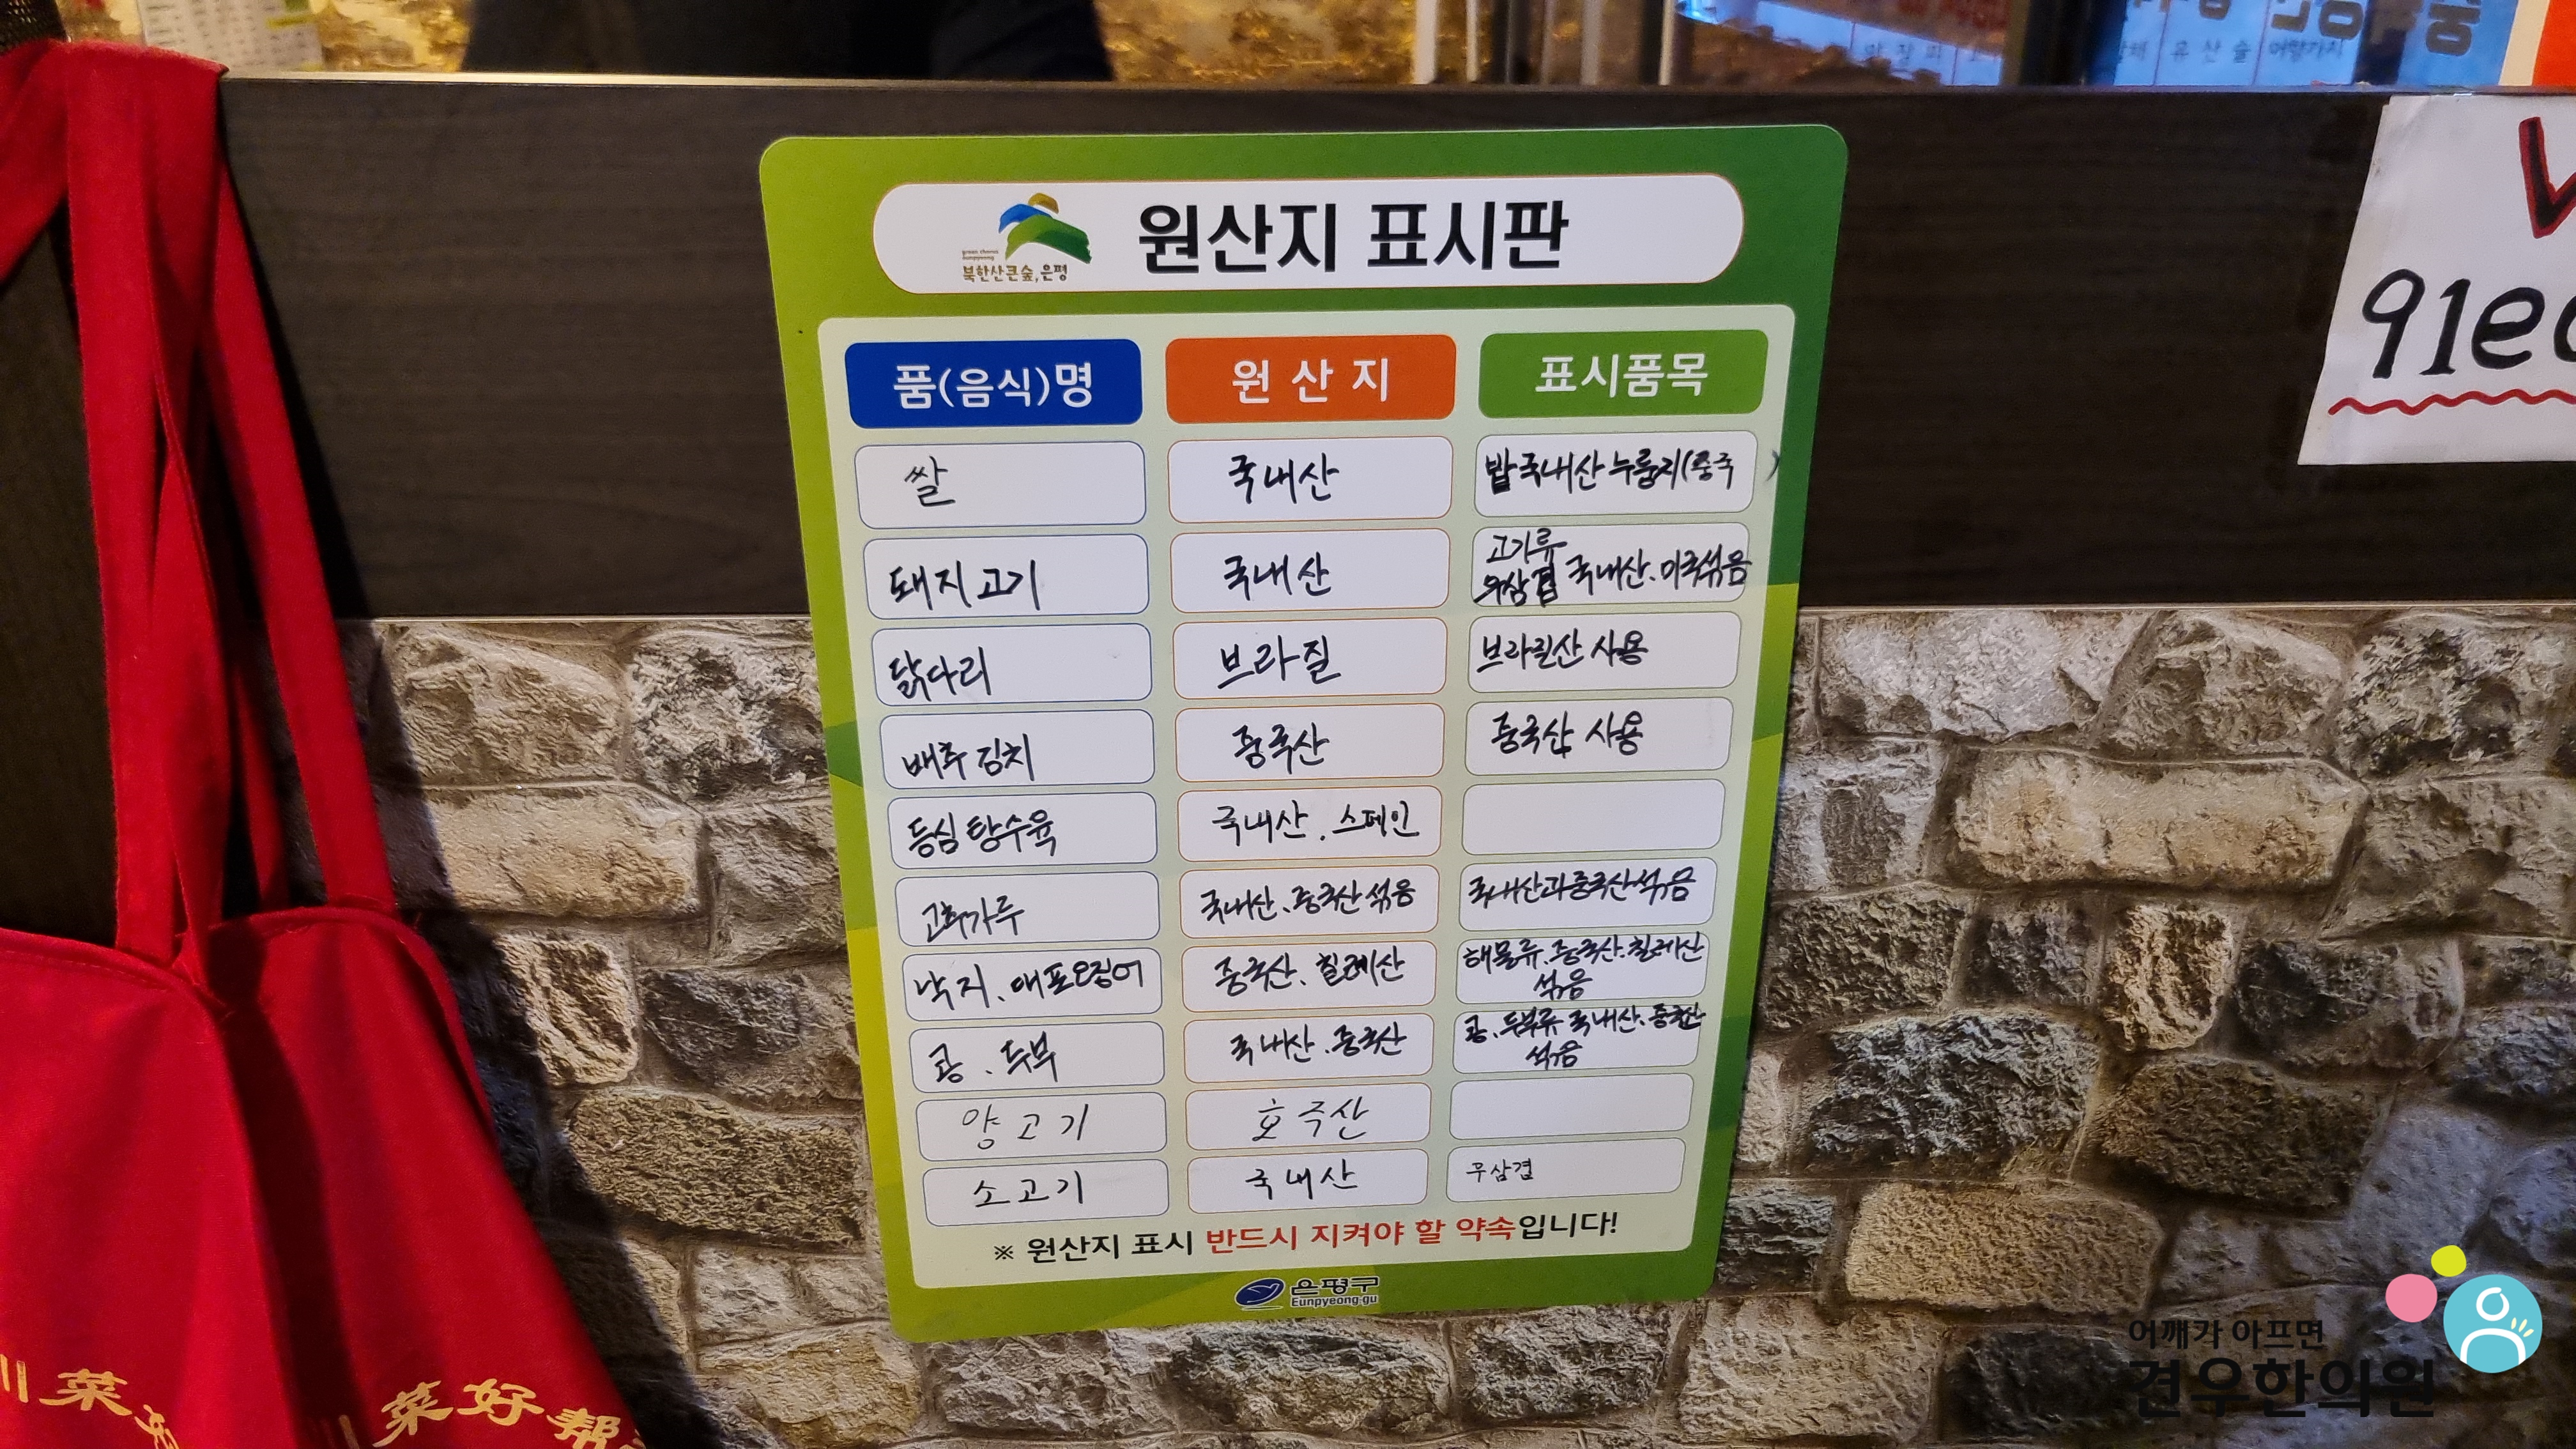 원산지 표시판
북한산큰숲,은평
품(음식)명 원산지 표시품목
쌀 국내산 밥국내산 누룽지(중국)
돼지고기 국내산 고기류
우삼겹 국내산.미국섞음
닭다리 브라질 브라질산 사용
배추김치 중국산 중국산 사용
등심탕수육 국내산.스페인
고추가루 국내산.중국산섞음 국내산과중국산섞음
낙지.대포오징어 중국산.칠레산 해물류.중국산.칠레산
섞음
콩.두부 국내산.중국산 콩.두부류 국내산.중국산
섞음
양고기 호주산
소고기 국내산 우삼겹
※ 원산지 표시 반드시 지켜야 할 약속입니다!
은평구
Eunpyeong-gu
川菜
川菜好帮
어깨가 아프면
견우한의원